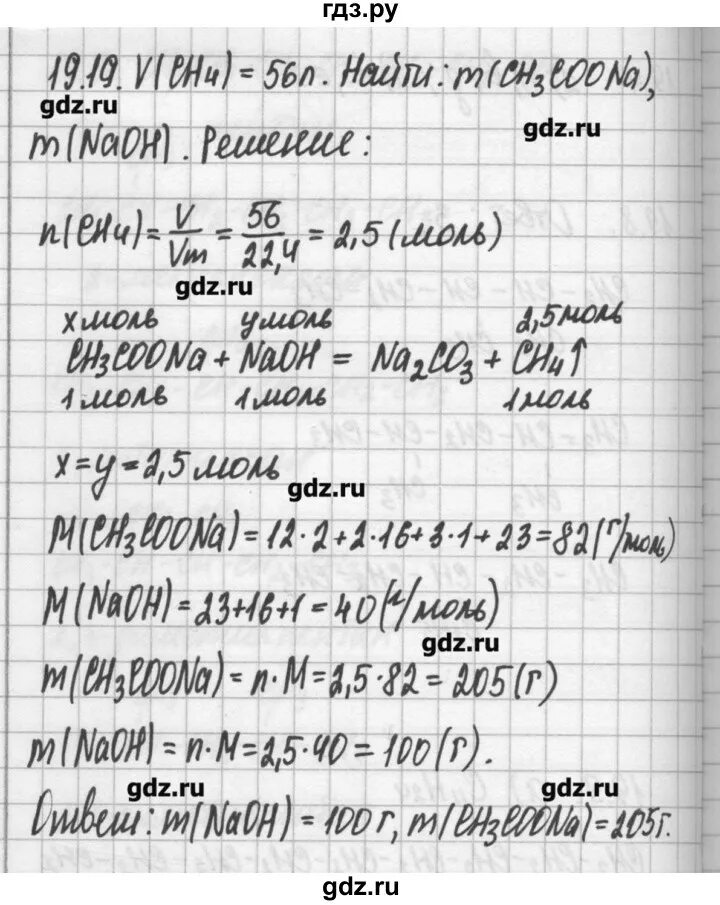 гдз.ру
19.19. V(CH4) = 56л. Найти: m(CH3COONa),
gdz.ru
gdz.ru
m(NaOH). Решение:
n(CH4) = V/Vm = 56/22,4 = 2,5 (моль)
gdz.ru
x моль y моль 2,5 моль
CH3COONa + NaOH = Na2CO3 + CH4↑
1 моль 1 моль 1 моль
x = y = 2,5 моль
gdz.ru
M(CH3COONa) = 12·2+2·16+3·1+23=82(г/моль)
M(NaOH) = 23+16+1 = 40(г/моль)
gdz.ru
m(CH3COONa) = n·M = 2,5·82 = 205(г)
m(NaOH) = n·M = 2,5·40 = 100(г).
gdz.ru
gdz.ru
Ответ: m(NaOH) = 100г, m(CH3COONa)=205г.
gdz.ru